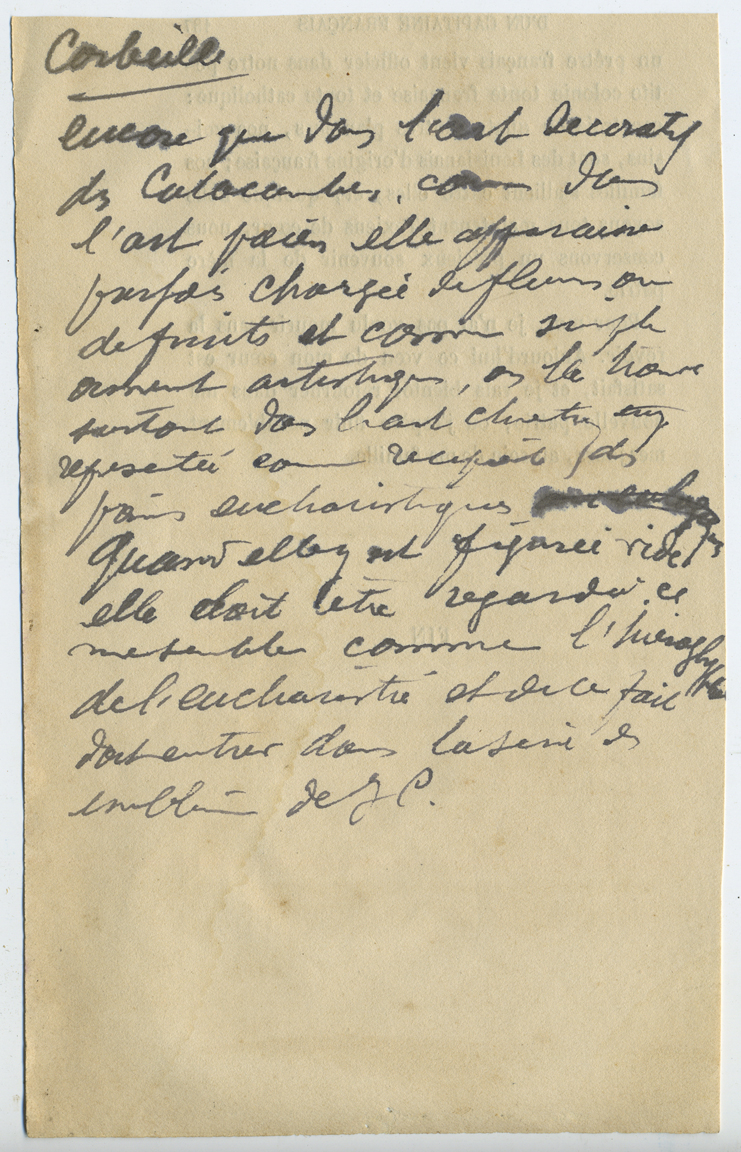 Corbeille
encore que dans l'art decoratif
des Catacombes, comme dans
l'art païen elle apparaisse
parfois chargée de fleurs ou
de fruits et comme simple
ornement artistique, on la trouve
surtout dans l'art chretien
représentée comme recipient des
pains eucharistiques
Quand elle y est figurée vide
elle doit être regardée ce
me semble comme l'hieroglyphe
de l'eucharistie et de ce fait
doit entrer dans la serie des
emblèmes de J C.